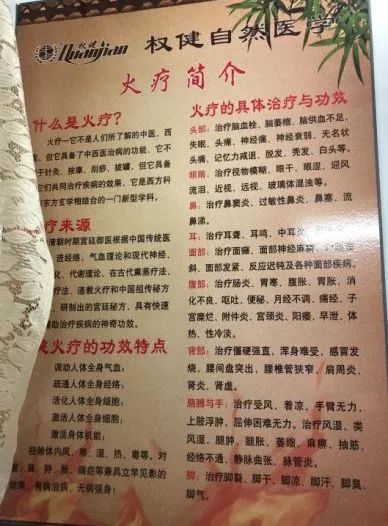 权健
Quanjian
权健自然医学
火疗简介
什么是火疗?
火疗一它不是人们所了解的中医、西
但它具备了中西医治病的功能、它不
于针灸、按摩、刮痧、拔罐,但它具备
它们共同治疗疾病的效果,它是西方科
东方玄学相结合的一门新型学科。
疗来源
清朝时期宫廷御医根据中国传统医
进经络,气血理论和现代神经、
化、代谢理论、在古代熏蒸疗法、
疗法、道教火疗和中国祖传秘方
研制出的宫廷秘方、具有快速
辅助治疗疾病的神奇功效。
火疗的功效特点
调动人体全身气血;
疏通人体全身经络;
活化人体全身细胞;
激活人体全身细胞;
激活身体机能;
祛除体内风、寒、湿、热、毒等。对
麻、肿、胀、痛症等兼具立竿见影的
效果,有病治病、无病强身!
火疗的具体治疗与功效
头部:治疗脑血栓、脑萎缩、脑供血不足、
失眠、头痛、神经痛、神经衰弱、无名状
头痛、记忆力减退、脱发、秃发、白头等。
眼睛:治疗视物模糊、眼干、眼湿、迎风
流泪、近视、远视、玻璃体混浊等。
鼻:治疗鼻窦炎、过敏性鼻炎、鼻塞、流
鼻涕。
耳:治疗耳聋、耳鸣、中耳炎
面部:治疗面瘫、面部神经麻
歪斜、面部发紧、反应迟钝及各种面部疾病。
腹部:治疗肠炎、胃寒、腹胀、胃胀、消
化不良、呕吐、便秘、月经不调、痛经、子
宫糜烂、附件炎、宫颈炎、阳痿、早泄、体
热、性冷淡。
背部:治疗僵硬强直、浑身难受、感冒发
烧、腰间盘突出、腰椎管狭窄、肩周炎、
肾炎、肾虚。
胳膊与手:治疗受风、着凉、手臂无力、
上肢浮肿、屈伸困难无力。治疗风湿、类
风湿、腿肿、腿胀、萎缩、麻痹、抽筋、
经络不通、静脉曲张、脉管炎。
脚:治疗脚裂、脚干、脚凉、脚汗、脚臭、
脚气。